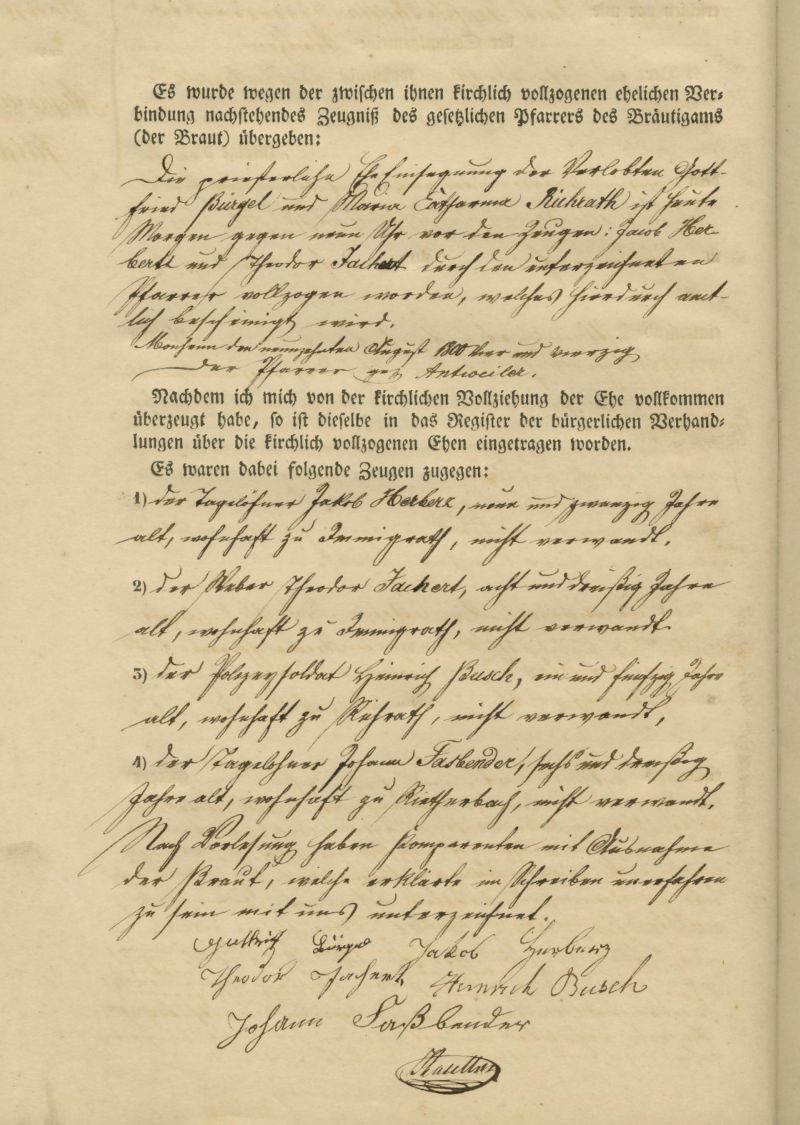 Es wurde wegen der zwischen ihnen kirchlich vollzogenen ehelichen Ver-
bindung nachstehendes Zeugniß des gesetzlichen Pfarrers des Bräutigams
(der Braut) übergeben:
Die priesterliche Ehe Einsegnung der Verlobten Gott-
fried Bürgel und Maria Catharina Richrath ist heute
Morgen gegen neun Uhr vor den Zeugen: Jacob Her-
bertz und Theodor Jachert durch den unterzeichneten
Pfarrer vollzogen worden, welches hierdurch amt-
lich bescheinigt wird.
Monheim den neunzehnten August 1800 vier und vierzig
Der Pfarrer gez Antweiler.
Nachdem ich mich von der kirchlichen Vollziehung der Ehe vollkommen
überzeugt habe, so ist dieselbe in das Register der bürgerlichen Verhand-
lungen über die kirchlich vollzogenen Ehen eingetragen worden.
Es waren dabei folgende Zeugen zugegen:
1) der Tagelöhner Jakob Herberz, neun und zwanzig Jahre
alt, wohnhaft zu Immigrath, nicht verwandt.
2) der Weber Theodor Jachert, acht und dreißig Jahre
alt, wohnhaft zu Immigrath, nicht verwandt.
3) der Polizeysoldat Heinrich Busch, ein und fünfzig Jahre
alt, wohnhaft zu Richrath, nicht verwandt,
4) der Tagelöhner Johann Fasbender, sechs und dreißig
Jahre alt, wohnhaft zu Rietherbach, nicht verwandt.
Nach Vorlesung haben Komparenten mit Ausnahme
der Braut, welche erklärte im Schreiben unerfahren
zu sein mit uns unterzeichnet.
Bürgel Jakob Herberz
Theodor Jachert Heinrich Busch
Johann Faßbender